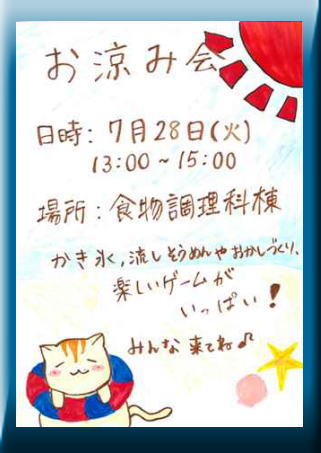 お涼み会
日時：7月28日(火)
13:00～15:00
場所：食物調理科棟
かき氷，流しそうめんやおかしづくり、
楽しいゲームが
いっぱい！
みんな来てね♪